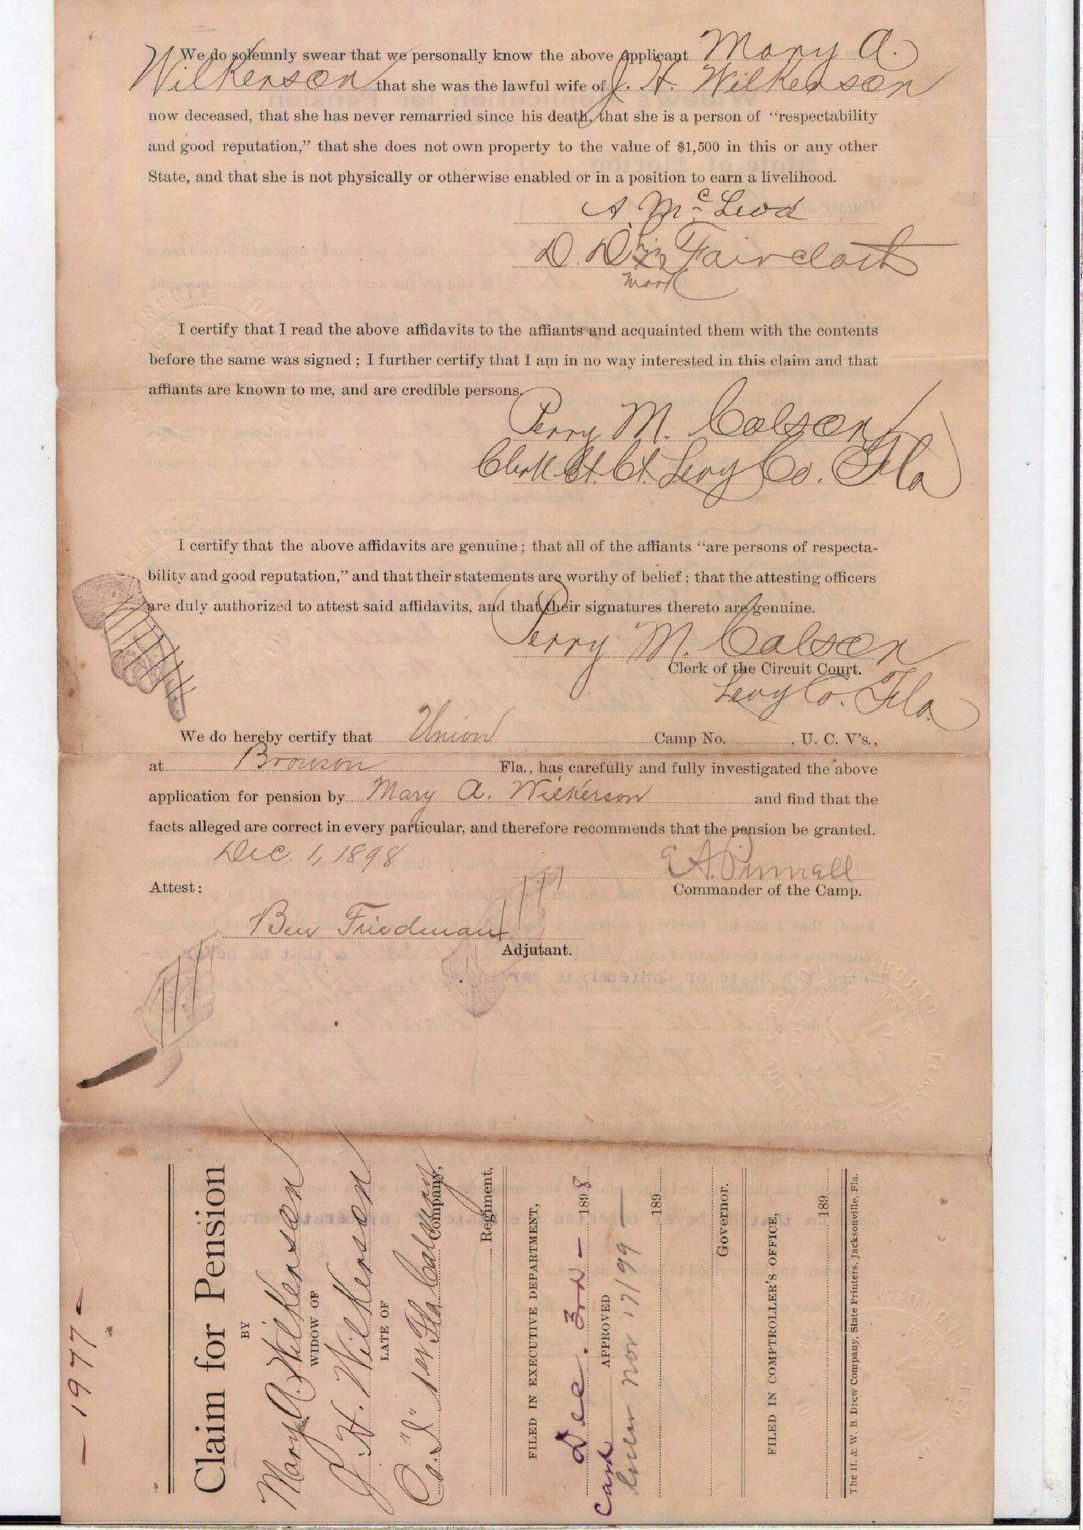 We do solemnly swear that we personally know the above applicant Mary A.
Wilkerson that she was the lawful wife of J. H. Wilkerson
now deceased, that she has never remarried since his death, that she is a person of "respectability
and good reputation," that she does not own property to the value of $1,500 in this or any other
State, and that she is not physically or otherwise enabled or in a position to earn a livelihood.
A. McLeod
D. D. his x Faircloth
mark
I certify that I read the above affidavits to the affiants and acquainted them with the contents
before the same was signed; I further certify that I am in no way interested in this claim and that
affiants are known to me, and are credible persons.
Perry M. Colson
Clerk Ct. Ct. Levy Co. Fla
I certify that the above affidavits are genuine; that all of the affiants "are persons of respecta-
bility and good reputation," and that their statements are worthy of belief; that the attesting officers
are duly authorized to attest said affidavits, and that their signatures thereto are genuine.
Perry M. Colson
Clerk of the Circuit Court.
Levy Co. Fla.
We do hereby certify that Union Camp No. , U. C. V's.,
at Bronson Fla., has carefully and fully investigated the above
application for pension by Mary A. Wilkerson and find that the
facts alleged are correct in every particular, and therefore recommends that the pension be granted.
Dec. 1, 1898
E. A. Pinnell
Attest: Commander of the Camp.
Ben Friedman
Adjutant.
- 1977 -
Claim for Pension
BY
Mary A. Wilkerson
WIDOW OF
J. H. Wilkerson
LATE OF
Co. "I" 1st Fla Calvary Company,
Regiment,
FILED IN EXECUTIVE DEPARTMENT,
Dec. 3rd - 1898
Card
APPROVED
Nov 17/99
189
Governor.
FILED IN COMPTROLLER'S OFFICE,
189
The H. & W. B. Drew Company, State Printers, Jacksonville, Fla.